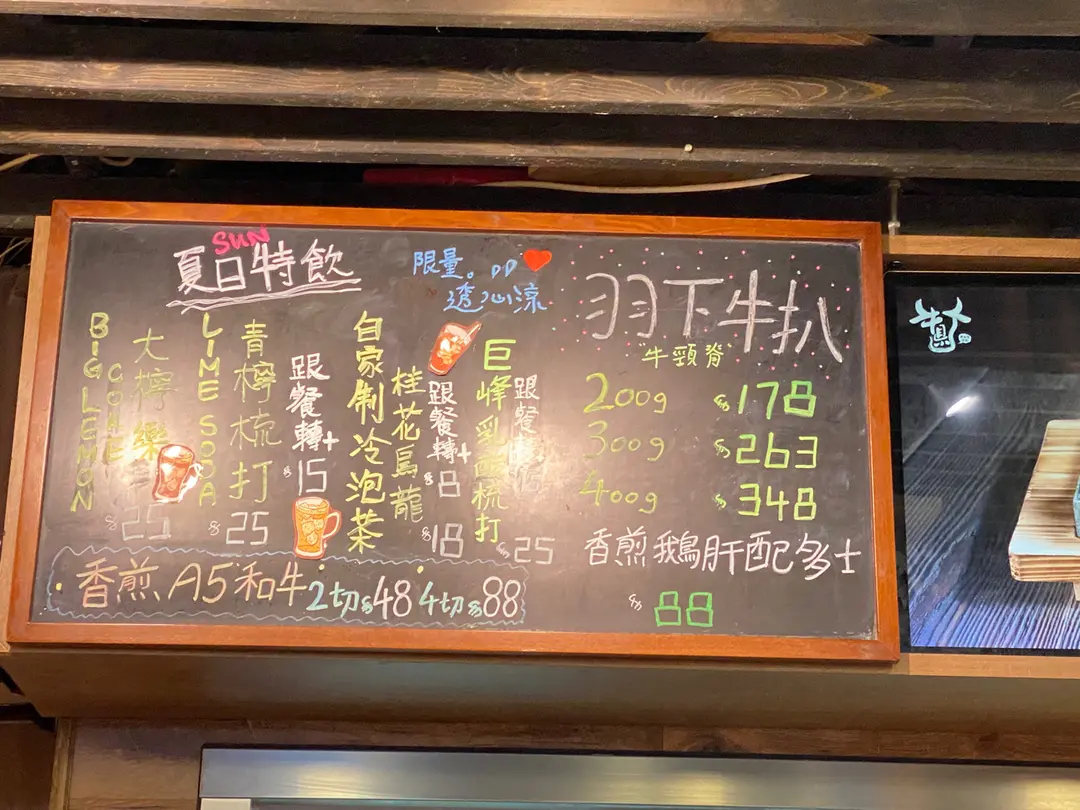 SUN
夏日特飲
限量。
透心涼
BIG LEMON
COKE
大檸樂
$25
LIME SODA
青檸梳打
$25
跟餐轉+
$15
自家制冷泡茶
桂花烏龍
$18
跟餐轉+
$8
巨峰乳酸梳打
$25
跟餐轉+
$15
香煎A5和牛2切$48 4切$88
羽下牛扒
"牛頸脊"
200g $178
300g $263
400g $348
香煎鵝肝配多士
$88